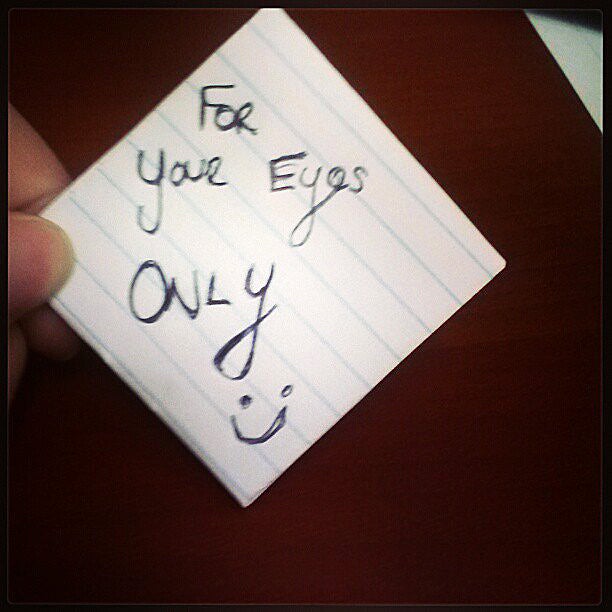 FOR
Your Eyes
ONLY